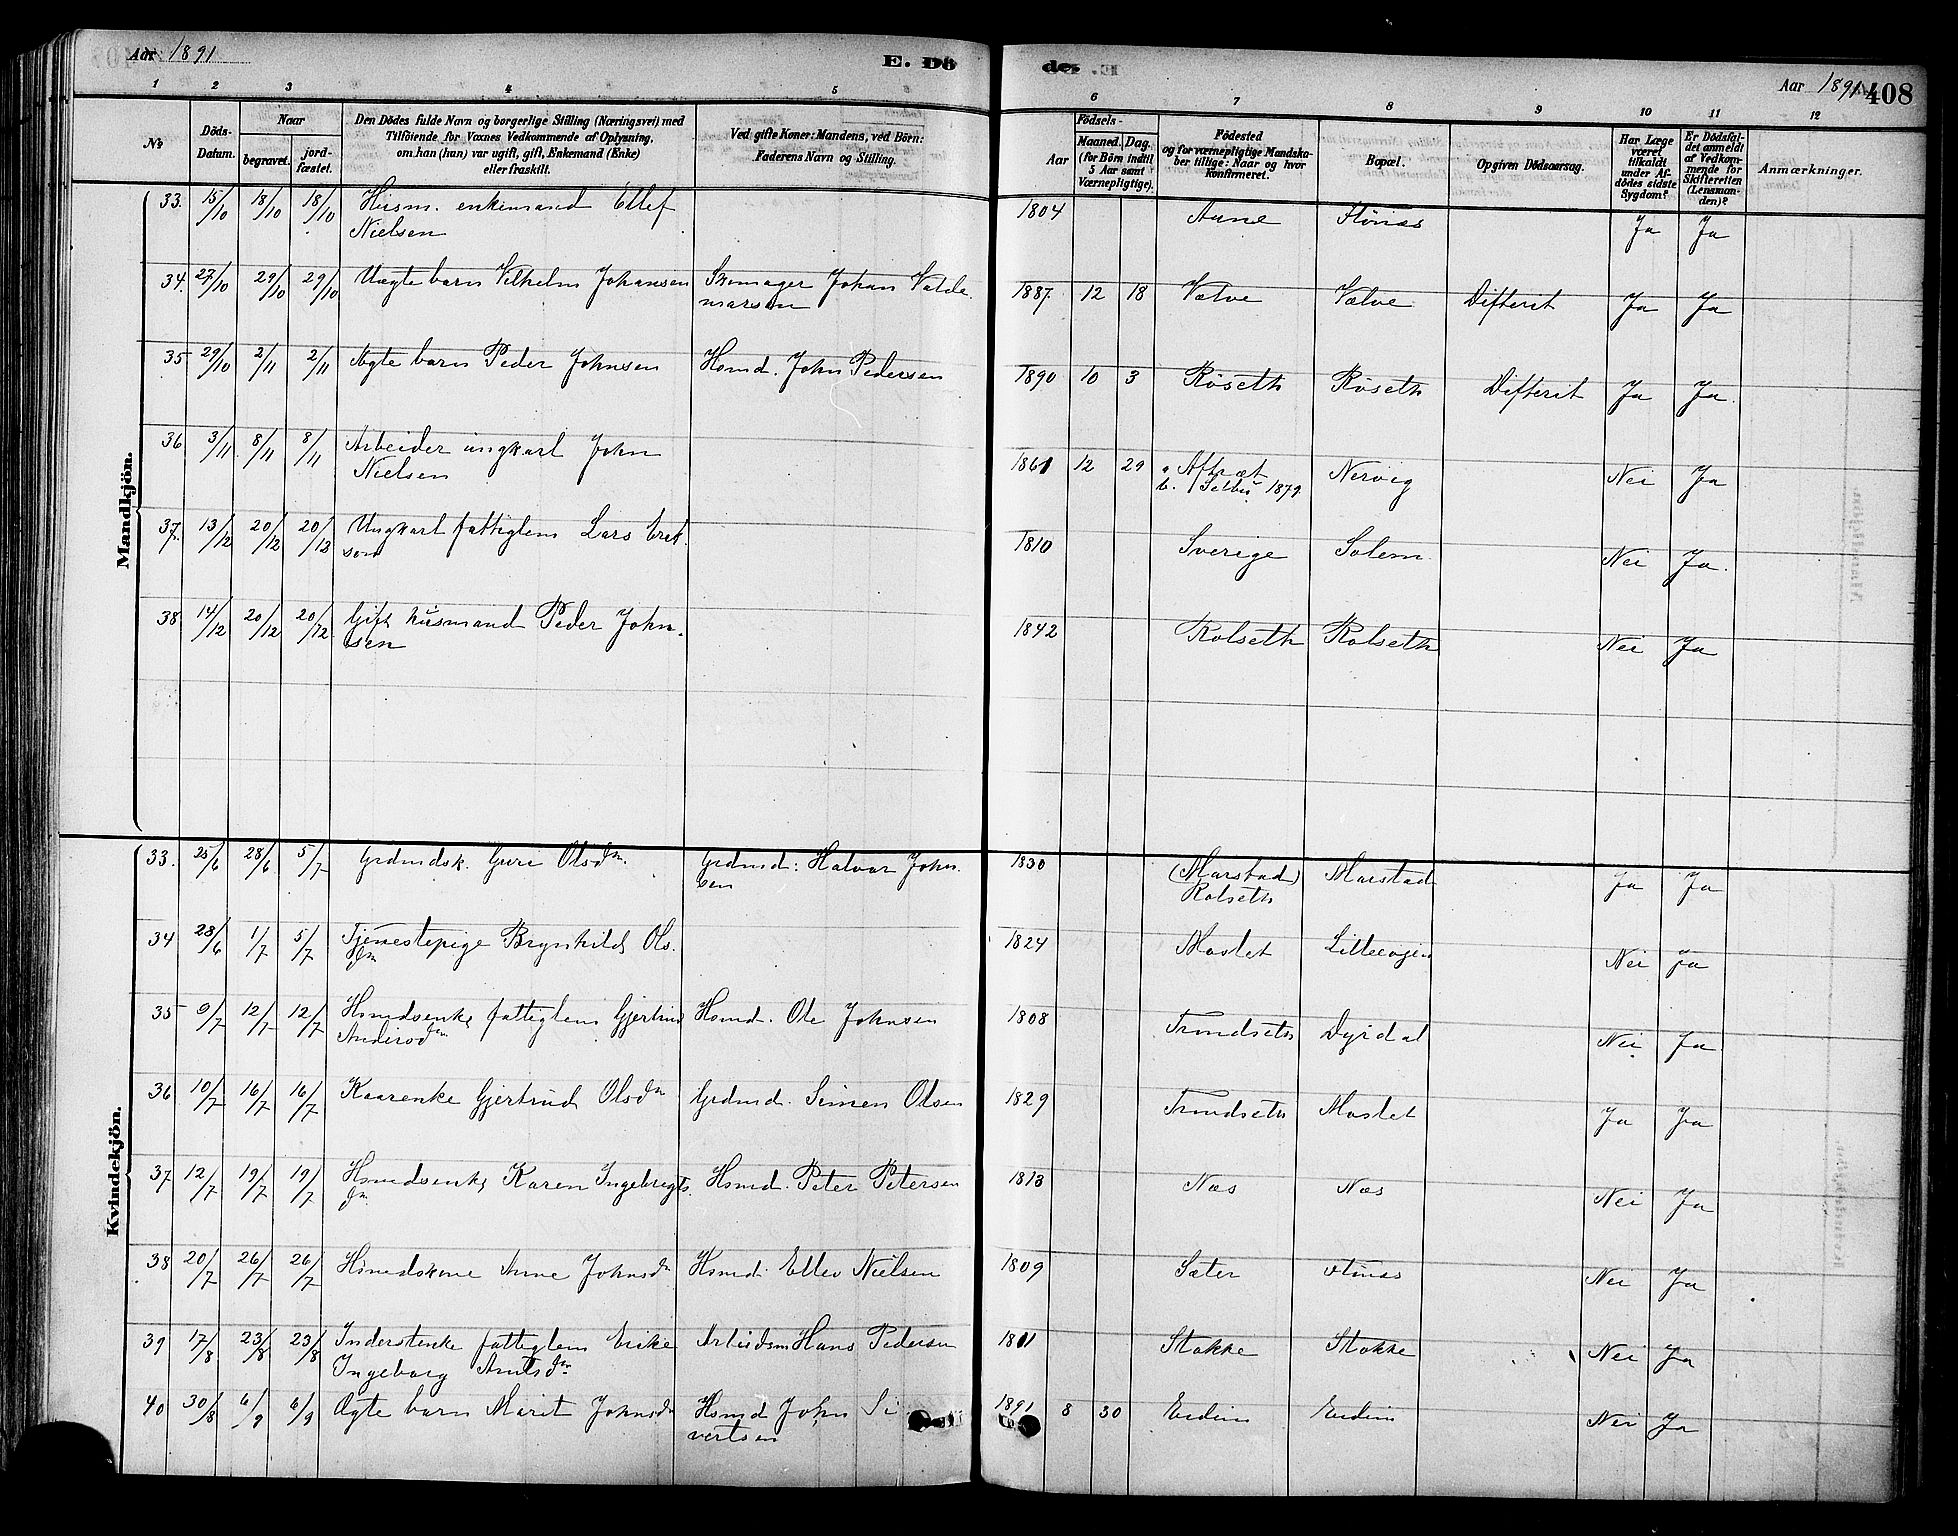 Aar 1891
E. Dö
de.
Aar 1891 408
1 2 3 4 5 6 7 8 9 10 11 12
No Döds-Datum. Naar begravet. jordfæstet.
Den Dödes fulde Navn og borgerlige Stilling (Næringsvei) med
Tilföiende for Voxnes Vedkommende af Oplysning,
om han (hun) var ugift, gift, Enkemand (Enke)
eller fraskilt.
Ved gifte Koner: Mandens, ved Börn:
Faderens Navn og Stilling.
Födsels- Aar Maaned. Dag. (for Börn indtil 5 Aar samt Værnepligtige).
Födested
og for værnepligtige Mandskaber tillige: Naar og hvor Konfirmeret.
Bopæl.
Opgiven Dödsaarsag.
Har Læge været tilkaldt under Afdödes sidste Sygdom?
Er Dödsfaldet anmeldt af Vedkommende for Skifteretten (Lensmanden)?
Anmærkninger.
Mandkjön.
33. 15/10 18/10 18/10 Husm. enkemand Ellef 1804 Aune Flönæs Ja Ja
Nielsen
34. 27/10 29/10 29/10 Uægte barn Vilhelm Johansen Skomager Johan Valde 1887. 12 18 Vælve Vælve Difterit Ja Ja
marsen
35 29/10 2/11 2/11 Ægte barn Peder Johnsen Hsmd. John Pedersen 1890 10 3 Röseth Röseth Difterit Ja Ja.
36 3/11 8/11 8/11 Arbeider ungkarl John 1861 12 29 Nervig Nei Ja
Nielsen b. Selbu 1879.
37. 13/12 20/12 20/12 Ungkarl fattiglem Lars Erik 1810 Sverige Solem. Nei Ja.
son
38 14/12 20/12 20/12 Gift husmand Peder John. 1842 Rolseth Rolseth Nei Ja
sen
Kvindekjön.
33. 25/6 28/6 5/7 Grdmdsk. Guri Olsdn. Grdmd: Halvar John. 1830 (Marstad) Marstad Ja Ja
sen Rolseth
34 28/6 1/7 5/7 Tjenestepige Brynhild Ols. 1824 Moslet Nei Ja
dn
35 9/7 12/7 12/7 Hsmdsenke fattiglem Gjertrud Hsmd. Ole Johnsen 1808 Trondseth Dyrdal Nei Ja
Andersdn
36 10/7 16/7 16/7 Kaarenke Gjertrud Olsdn Grdmd. Simen Olsen 1829 Trondseth Moslet Ja Ja
37 12/7 19/7 19/7 Hsmdsenke Karen Ingebrigts. Hsmd. Peter Petersen 1813 Næs Næs Nei Ja
dn
38 20/7 26/7 26/7 Hsmdskone Anne Johnsdn Hsmd. Ellev Nielsen 1809 Sæter Flönæs Nei Ja
39 17/8 23/8 23/8 Inderstenke fattiglem Enke Arbeidsm Hans Pedersen 1811 Stokke Stokke Nei Ja
Ingeborg Arntsdn
40 30/8 6/9 6/9 Ægte barn Marit Johnsdn Hsmd John Si 1891 8 30 Evdim Evdim Nei Ja
vertsen